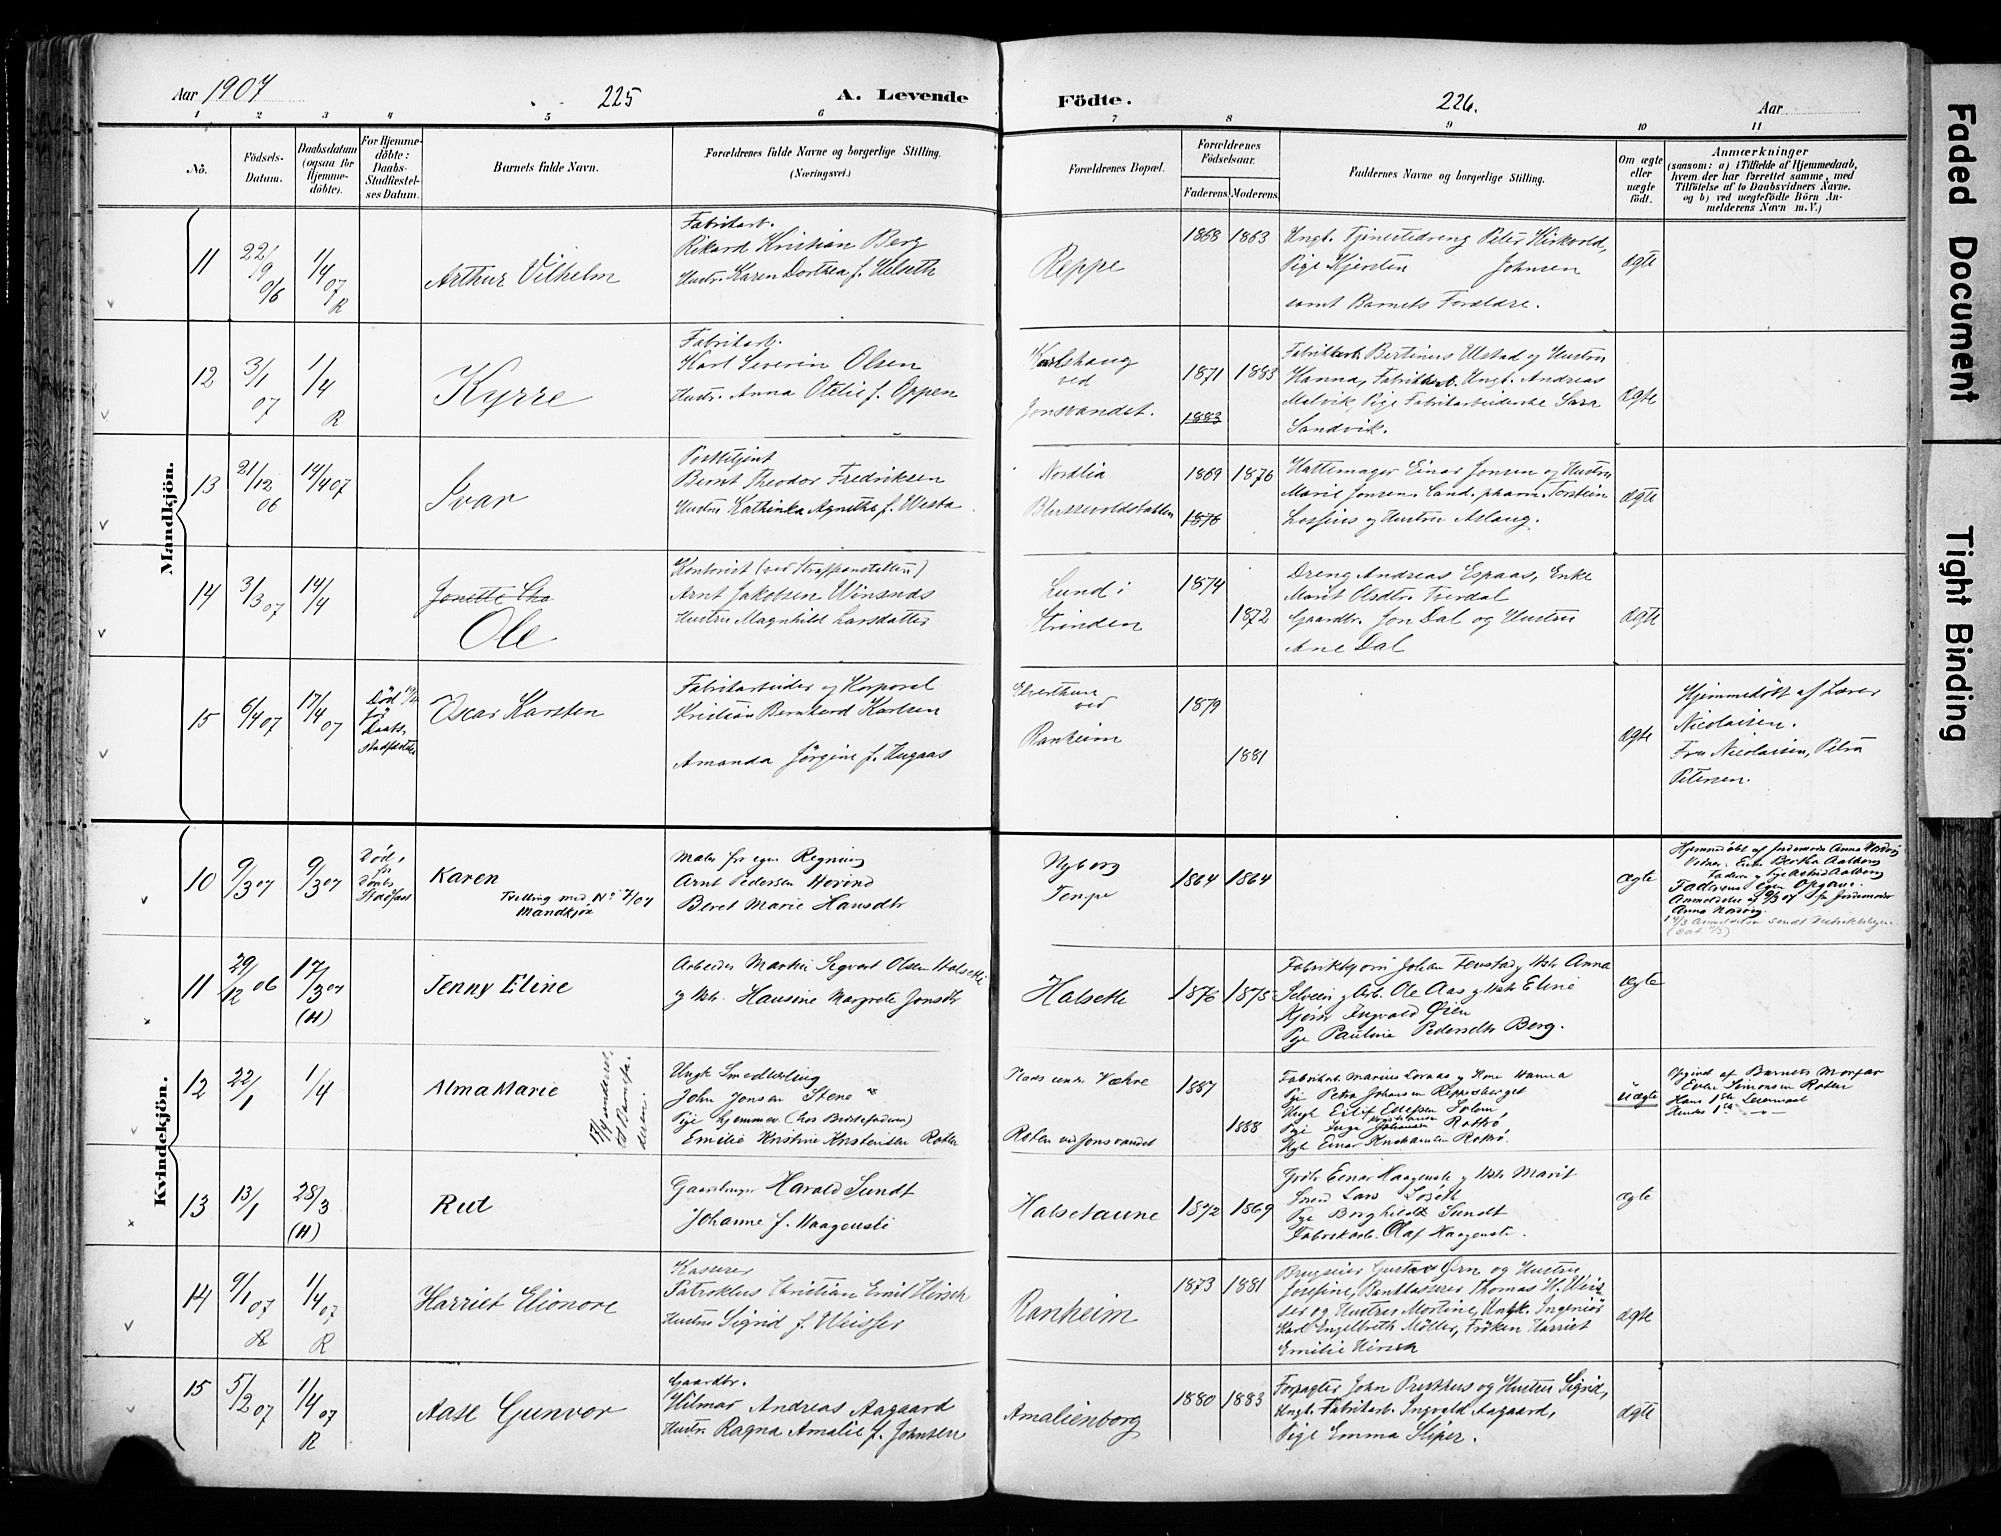 Aar 1907
225
A. Levende
Födte.
226.
Aar
1 2 3 4 5 6 7 8 9 10 11
No.
Födsels-
Datum.
Daabsdatum
(ogsaa for
Hjemme-
döbte).
For Hjemme-
döbte:
Daabs-
Stadfæstel-
ses Datum.
Barnets fulde Navn.
Forældrenes fulde Navne og borgerlige Stilling.
(Næringsvei.)
Forældrenes Bopæl.
Forældrenes
Födselsaar.
Faderens Moderens
Faddernes Navne og borgerlige Stilling.
Om ægte
eller
uægte
født.
Anmærkninger
(saasom: a) i Tilfælde af Hjemmedaab,
hvem der har forrettet samme, med
Tilföielse af to Daabsvidners Navne.
og b) ved uægtefödte Börn An-
melderens Navn m.V.)
Mandkjön.
11
22/9 06
1/4 07
R
Arthur Vilhelm
Fabrikarb.
Rikard Kristian Berg
Hustr. Karen Dorthea f.
Reppe
1868 1863
Ungk. Tjenestedreng Peter Kirkvold,
Pige Kjersten Johnsen
samt Barnets Forældre.
ægte
12
3/1 07
1/4
R
Kyrre
Fabrikarb.
Karl Severin Olsen
Hustr. Anna Otelie f. Oppen
Karlshaug
ved
Jonsvandet.
1871 1883
1883
Fabrikkarb. Bertinus Ulstad og Hustru
Hanna, Fabrikarb. Ungk. Andreas
Malvik, Pige Fabrikarbeiderske Sara
Sandvik.
ægte
13
21/12 06
14/4 07
Ivar
Postbetjent
Bernt Theodor Fredriksen
Hustru Kathinka Agnethe f. Westa
Nordlia
1869 1876
1876
Hattemager Einar Jonsen og Hustru
Marie Jonsen. Cand. pharm. Torstein
Lossius og Hustru Aslaug.
ægte
14
3/3 07
14/4
Jonette
Ole
Kontorist (ved Straffanstalten)
Arnt Jakobsen Winsnes
Hustru Magnhild Larsdatter
Lund i
Strinden
1874
1872
Dreng Andreas Espaas, Enke
Marit Olsdtr. Tverdal
Gaardbr. Jon Dal og Hustru
Ane Dal
ægte
15
6/4 07
17/4 07
Død
før
Daabs-
stadfæstelse
Oscar Karsten
Fabrikarbeider og Korporal
Kristian Bernhard Karlsen
Amanda Jørgine f. Hugaas
ved
Ranheim
1879
1881
ægte
Hjemmedöbt af Lærer
Nicolaisen.
Fru Nicolaisen, Petra
Petersen.
Kvindekjön.
10
9/3 07
9/3 07
Død
før
Daabs
Stadfæst
Karen
Tvilling med No 7/07
Mandkjøn
Maler for egen Regning
Arnt Pedersen Hovind
Beret Marie Hansdtr
Nyborg
Tempe
1864 1864
ægte
Hjemmedøbt af Jordemoder Anna Nordvig
Vidner: Enke Bertha Aalberg
Faderen og Pige Astrid Aalberg
Faderens egen Opgave.
Anmeldelse af 9/3 07 fra Jordemoder
Anna Nordvig
11
29/12 06
17/3 07
(H)
Jenny Eline
Arbeider Martin Sigvart Olsen Halsetli
og Hstr. Hansine Margrete Jonsdtr
Halsetli
1876 1875
Fabrikbygn Johan Tenstad og Hstr Anna
Solveien og Arb. Ole Aas og Hstr Eline
Kjører Ingvald Øien
Pige Pauline Pedersdtr Berg.
ægte
12
22/1
1/4
Alma Marie
Ungk Smedlærling
John Jonsen Stene
Pige hjemmev. (hos Bedstefaderen)
Emilie Kristine Kristensen Roten
Plads under Være
Roten ved Jonsvandet
1887
1888
Fabrikarb. Marius Loraas og Kone Hanna
Pige Petra Johansen Reppesberget
Ungk Eilif Ellefsen Solem,
Pige Inga Johansen Rotten,
Ungk Einar Kristiansen Rotten.
uægte
Opgivet af Barnets Morfar
Evan Simonsen Roten
Hans 1ste Leiermaal
Hendes 1ste — " —
13
13/1
28/3
(H)
Rut
Gaardbruger Harald Sundt
Johanne f. Haagensli
Halsetaune
1872 1869
Grdbr Einar Haagensli og Hstr Marit
Smed Lars Loseth
Pige Borghild Sundt
Fabrikarb. Olaf Haagensli.
ægte
14
9/1 07
R
1/4 07
R
Harriet Elionore
Kasserer
Patroklus Christian Emil Hirsch
Hustru Sigrid f. Weisser
Ranheim
1873 1881
Brugseier Gustav Ørn og Hustru
Josefine, Bankkasserer Thomas H. Weis-
ser og Hustru Martine, Ungk. Ingeniør
Karl Engelbreth Møller, Frøken Harriet
Emilie Hirsch
ægte
15
5/2 07
1/4 07
R
Aase Gunvor
Gaardbr.
Hilmar Andreas Aagaard
Hustr. Ragna Amalie f. Johnsen
Amalienborg
1880 1883
Forpagter John Presthus og Hustru Sigrid,
Ungk. Fabrikarb. Ingvald Aagaard,
Pige Emma Sliper.
ægte
Faded Document
Tight Binding